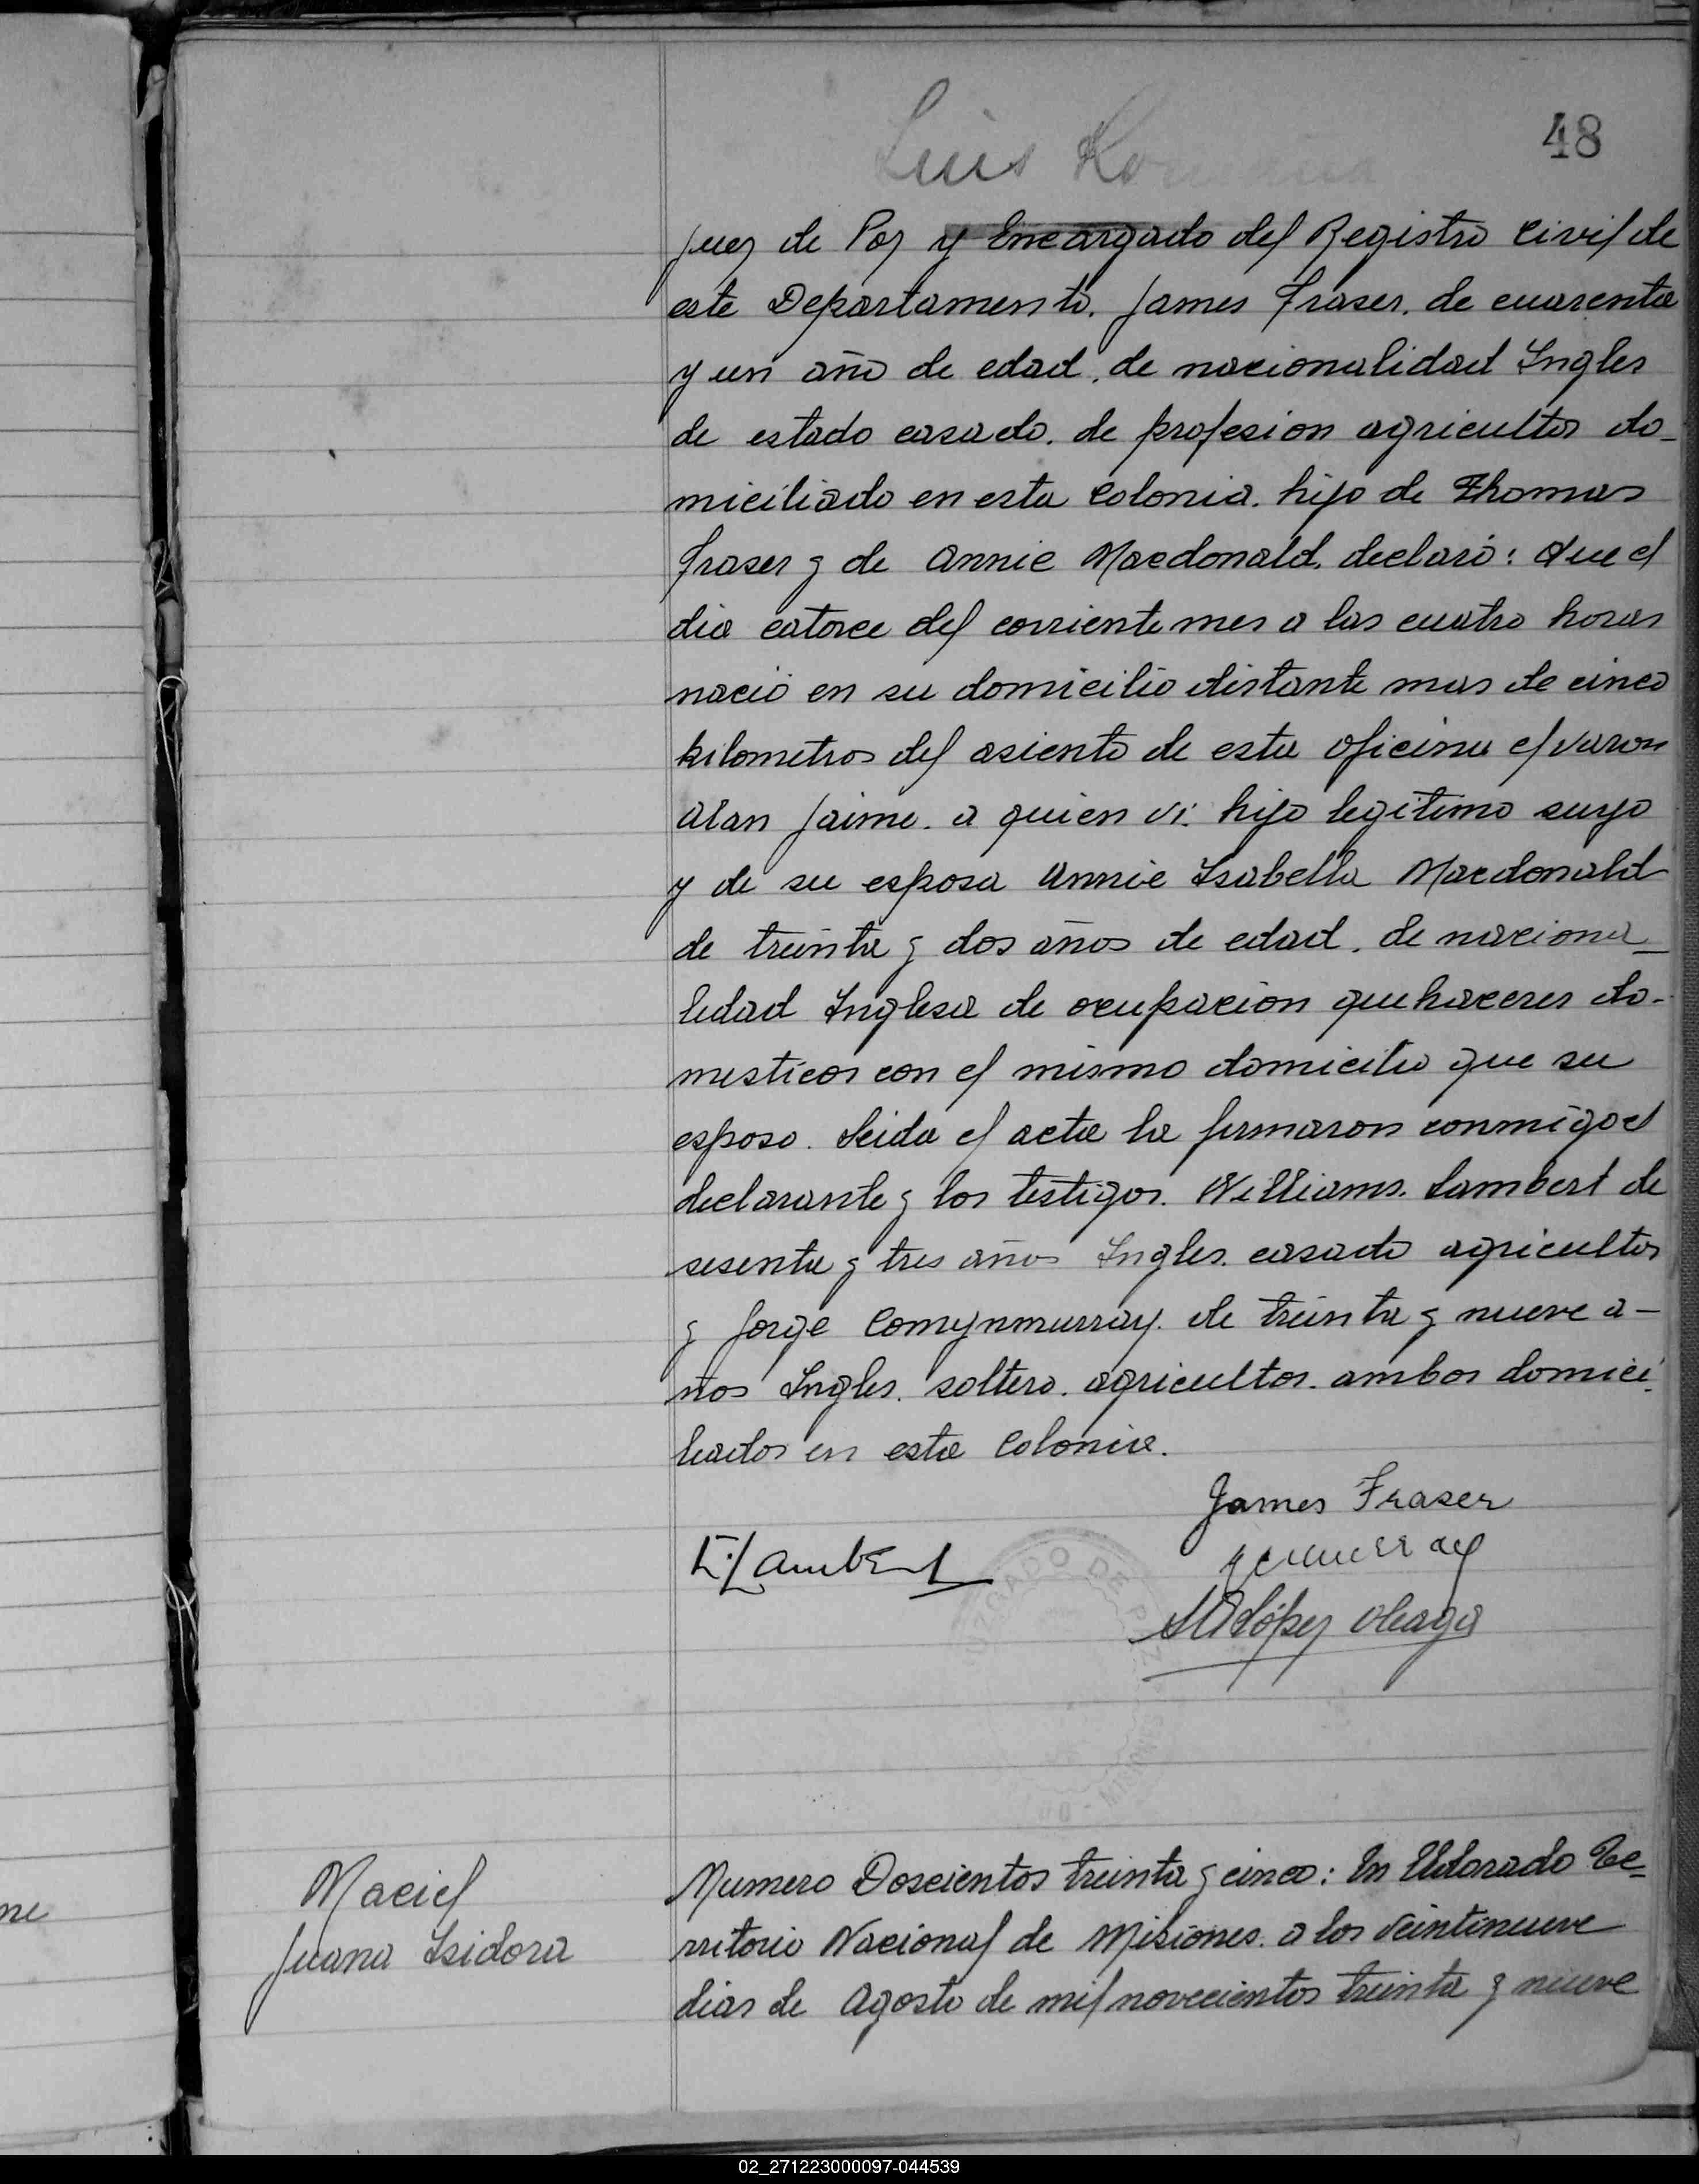 Luis
48
Juez de Paz y Encargado del Registro Civil de
este Departamento. James Fraser. de cuarenta
y un año de edad, de nacionalidad Ingles
de estado casado. de profesion agricultor do-
miciliado en esta Colonia. hijo de Thomas
Fraser y de Annie Macdonald, declaró: Que el
dia catorce del corriente mes a las cuatro horas
nació en su domicilio distante mas de cinco
kilometros del asiento de esta oficina el varon
Alan Jaime. a quien vi: hijo legitimo suyo
y de su esposa Annie Isabella Macdonald
de treinta y dos años de edad. de naciona-
lidad Inglesa de ocupacion quehaceres do-
mesticos con el mismo domicilio que su
esposo. Leida el acta la firmaron conmigo el
declarante y los testigos. Williams. Lambert de
sesenta y tres años Ingles. casado agricultor
y Jorge Comynmurray. de treinta y nueve a-
ños Ingles. soltero. agricultor. ambos domici-
liados en esta Colonia.
James Fraser
Lambert
López Aleaga
JUZGADO DE PAZ
Maciel
Juana Isidora
Numero Doscientos treinta y cinco: En Eldorado Te-
rritorio Nacional de Misiones. a los veintinueve
dias de Agosto de mil novecientos treinta y nueve
02_271223000097-044539